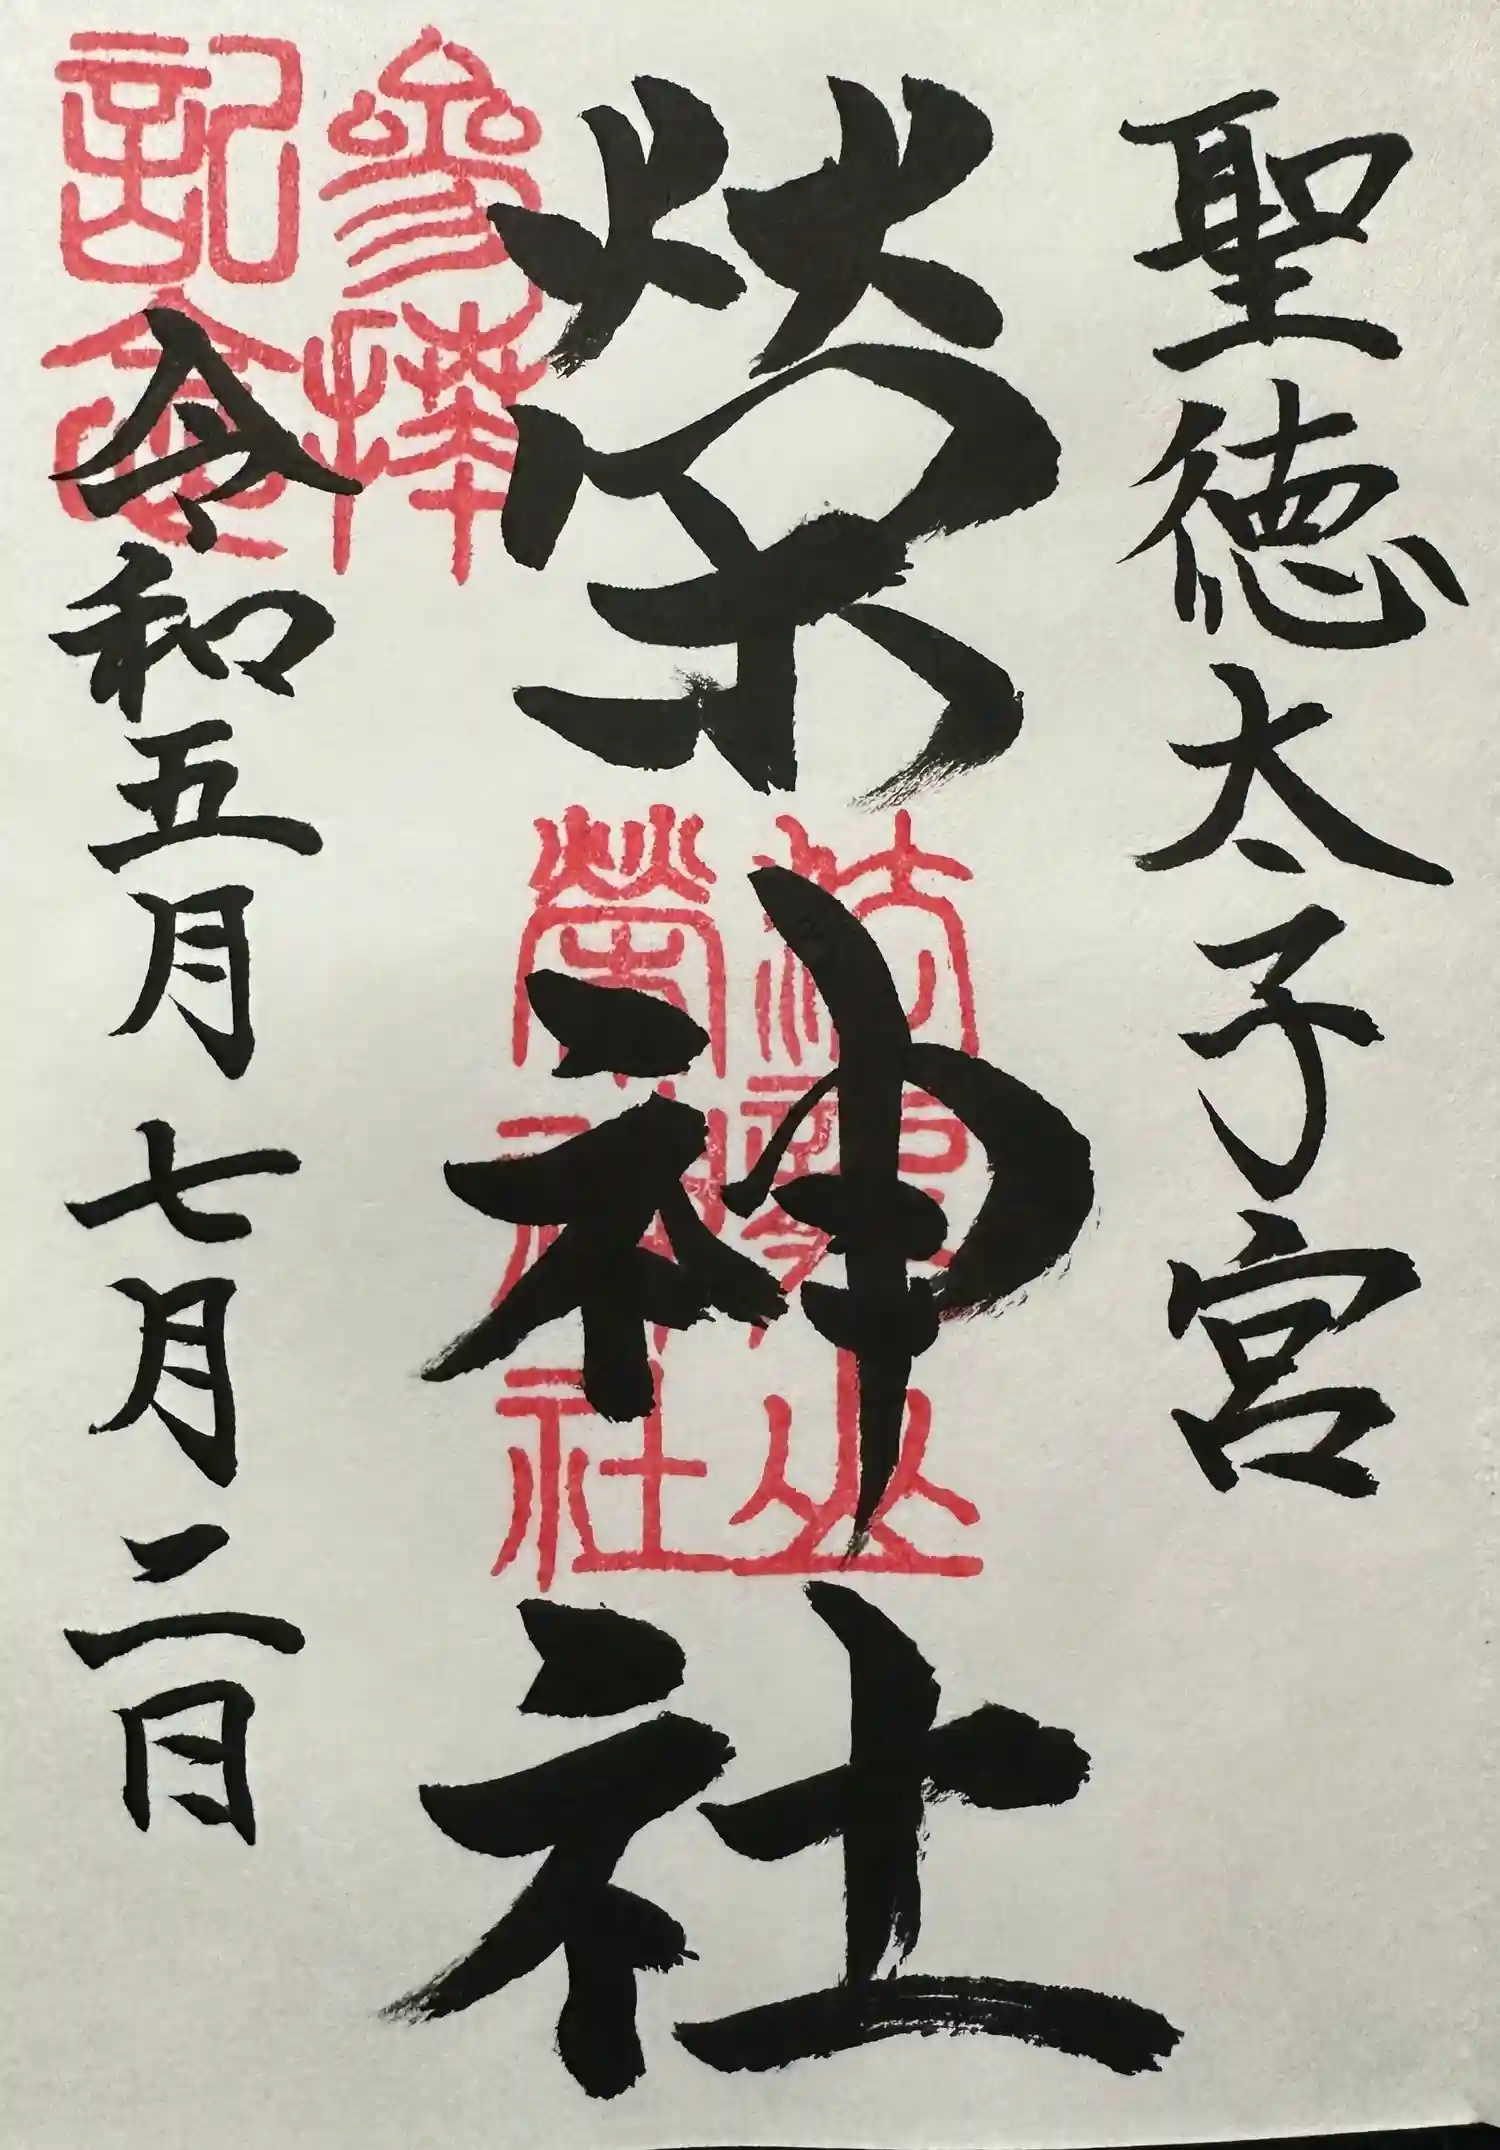 聖徳太子宮
栄神社
参拝記念
令和五月七月二日
榮神社